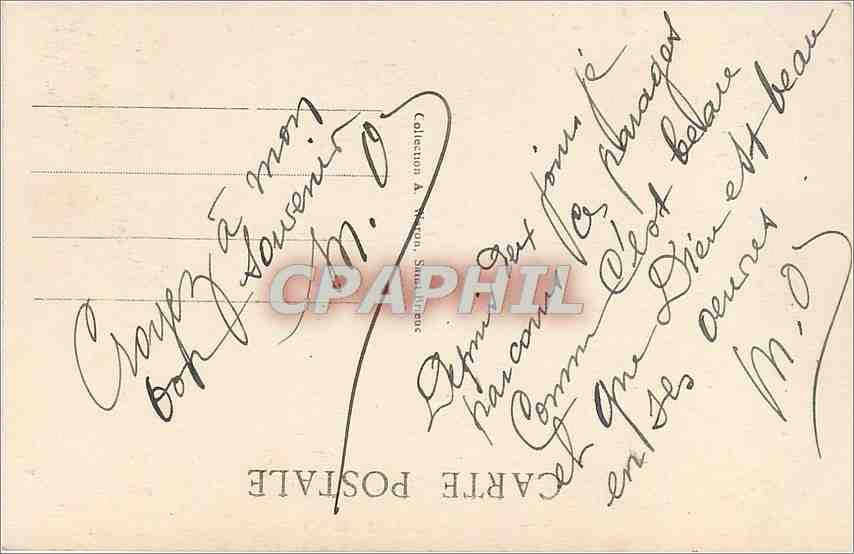 Depuis deux jours je
parcours ces parages
Comme c'est beau
et que Dieu est beau
en ses oeuvres
M. O
Croyez à mon
bon souvenir
M. O
Collection A. Waron, Saint-Brieuc
CARTE POSTALE
CPAPHIL